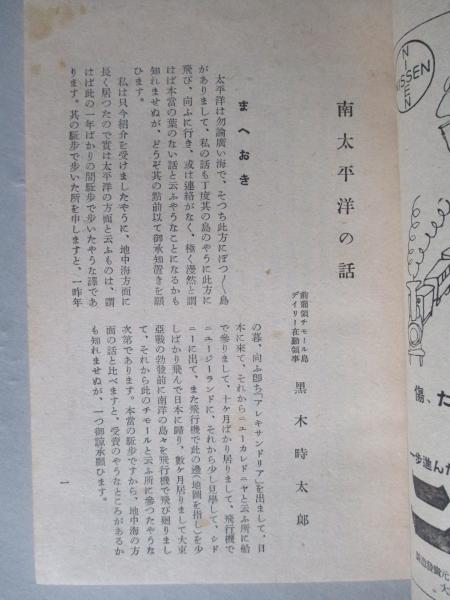 南太平洋の話
前葡領チモール島
デイリー在勤領事
黒木時太郎
まへおき
太平洋は勿論廣い海で、そつち此方にぽつ〳〵島
がありまして、私の話も丁度其の島のやうに此方に
飛び、向ふに行き、或は連絡がなく、極く漫然と謂
はば本當の葉のない話と云ふやうなことになるかも
知れませぬが、どうぞ其の點前以て御承知置きを願
ひます。
私は只今紹介を受けましたやうに、地中海方面に
長く居つたので實は太平洋の方面と云ふものは、謂
はば此の一年ばかりの間駈歩で歩いたやうな譯であ
ります。其の駈歩で歩いた所を申しますと、一昨年
の暮、向ふ卽ち「アレキサンドリア」を出まして、日
本に來て、それからニューカレドニヤと云ふ所に船
で參りまして、十ヶ月ばかり居りまして、飛行機で
ニュージーランドに、それから少し見學して、シド
ニーに出て、また飛行機で此の邊(地圖を指し)を少
しばかり飛んで日本に歸り、數ヶ月居りまして大東
亞戰の勃發前に南洋の島々を飛行機で飛び廻りまし
て、それから此のチモールと云ふ所に參つたやうな
次第であります。本當の駈歩ですから、地中海の方
面の話と比べますと、受賣のやうなところがあるか
も知れませぬが、一つ御諒承願ひます。
一
NISSEN
NISSEN
傷、た
歩進んだ